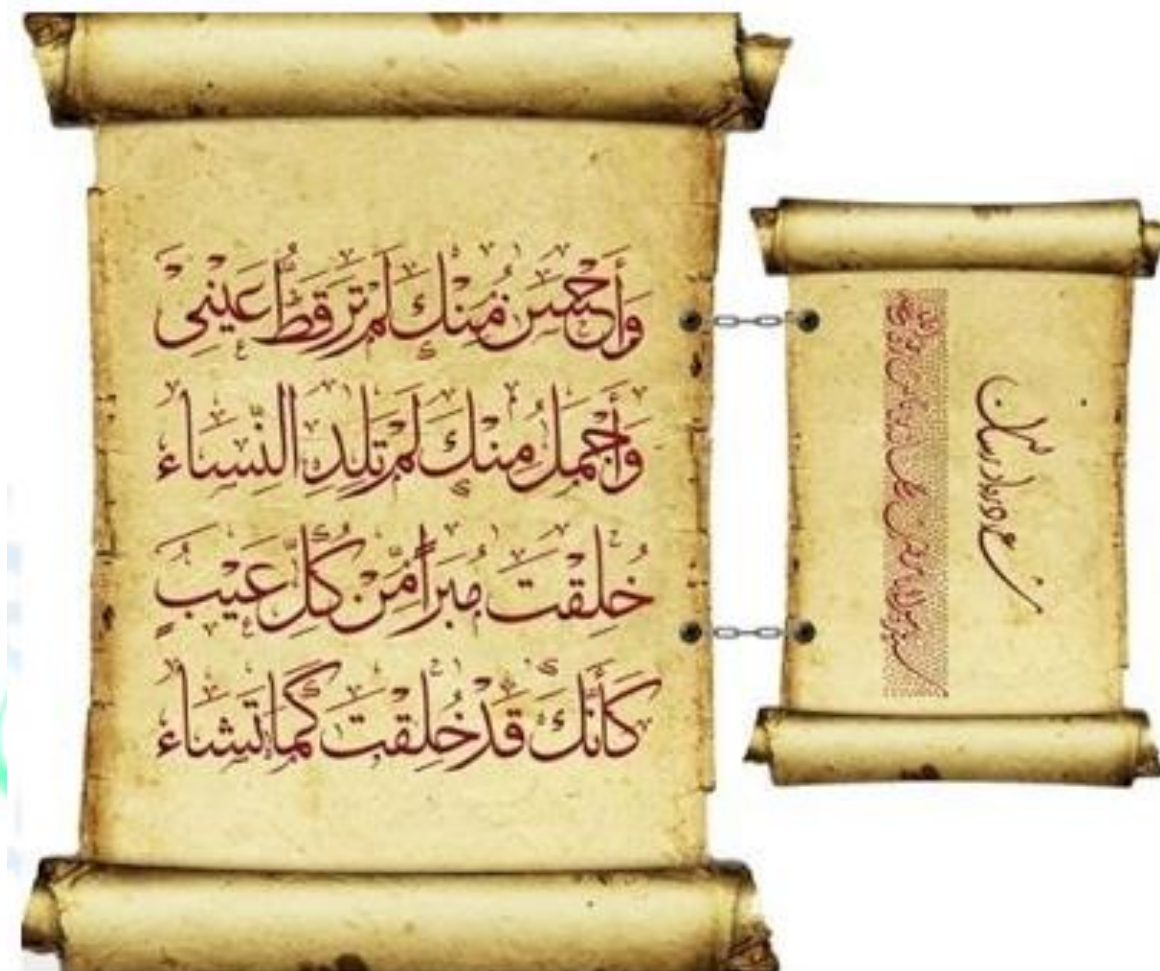 وَأَحْسَن مِنْكَ لَمْ تَرَ قَطُّ عَيْنِيْ
وَأَجْمَلُ مِنْكَ لَمْ تَلِدِ النِّسَاء
خُلِقْتَ مُبَرأً مِّنْ كُلِّ عَيْبٍ
كَأَنَّكَ قَدْ خُلِقْتَ كَمَا تَشَاء